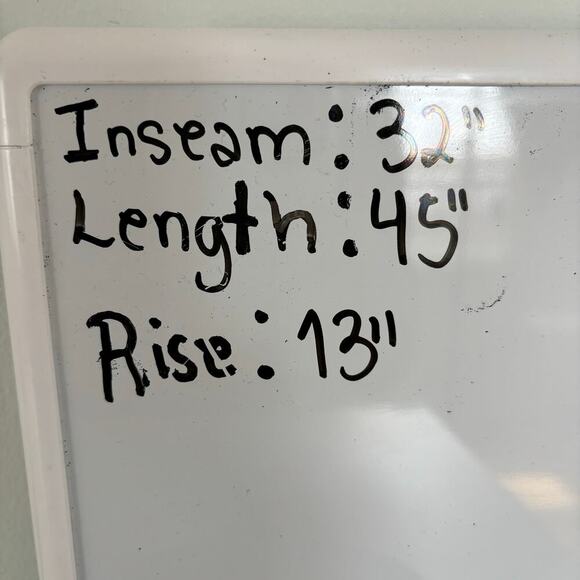 Inseam: 32"
Length: 45"
Rise: 13"